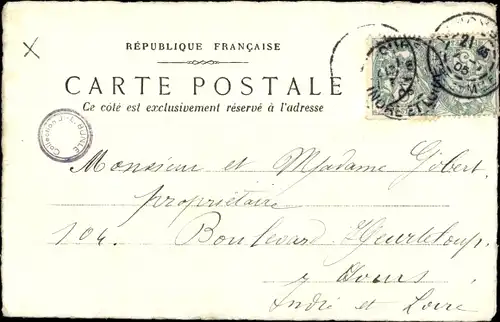 RÉPUBLIQUE FRANÇAISE
CARTE POSTALE
Ce côté est exclusivement réservé à l'adresse
Collection J-L. BUNLE
INDRE ET LOIRE
Monsieur et Madame Gobert
propriétaire
104. Boulevard Heurteloup.
Tours
Indre et Loire